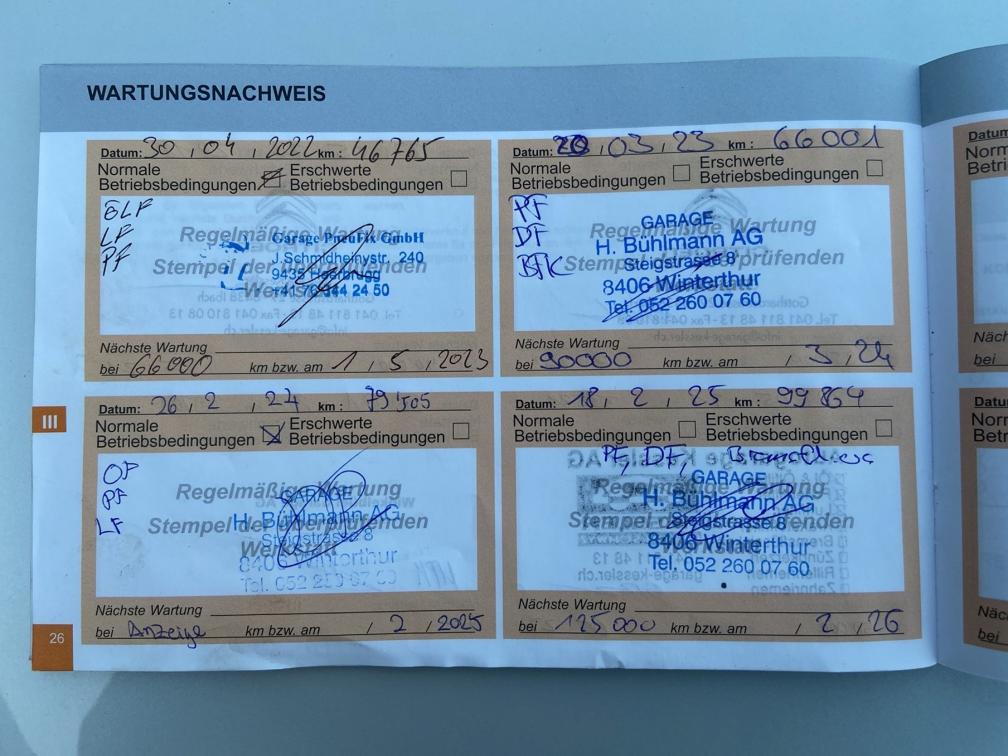 WARTUNGSNACHWEIS
Datum: 30 , 04 , 2022 km : 46765
Normale Betriebsbedingungen
Erschwerte Betriebsbedingungen
LF
PF
Regelmäßige Wartung
Stempel der überprüfenden
Garage PneuFix GmbH
J.Schmidheinystr. 240
9435 Heerbrugg
Nächste Wartung
bei 66000 km bzw. am 1 , 5 , 2023
Datum: 20 , 03 , 23 km : 66001
Normale Betriebsbedingungen
Erschwerte Betriebsbedingungen
PF
DF
BFK
Regelmäßige Wartung
Stempel der überprüfenden
GARAGE
H. Bühlmann AG
Steigstrasse 8
8406 Winterthur
Tel. 052 260 07 60
Nächste Wartung
bei 90000 km bzw. am / 3 , 24
III
Datum: 26 , 2 , 24 km :
Normale Betriebsbedingungen
Erschwerte Betriebsbedingungen
OF
PF
LF
Regelmäßige Wartung
Stempel der überprüfenden
GARAGE
H. Bühlmann AG
Steigstrasse 8
8406 Winterthur
Tel. 052 260 07 60
Nächste Wartung
bei Anzeige km bzw. am / 2 / 2025
Datum: 18 , 2 , 25 km : 99864
Normale Betriebsbedingungen
Erschwerte Betriebsbedingungen
PF, DF,
Regelmäßige Wartung
Stempel der überprüfenden
GARAGE
H. Bühlmann AG
Steigstrasse 8
8406 Winterthur
Tel. 052 260 07 60
Nächste Wartung
bei 125000 km bzw. am / 2 , 26
26